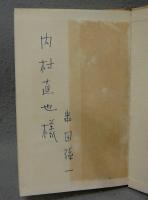 内村直也様
串田孫一